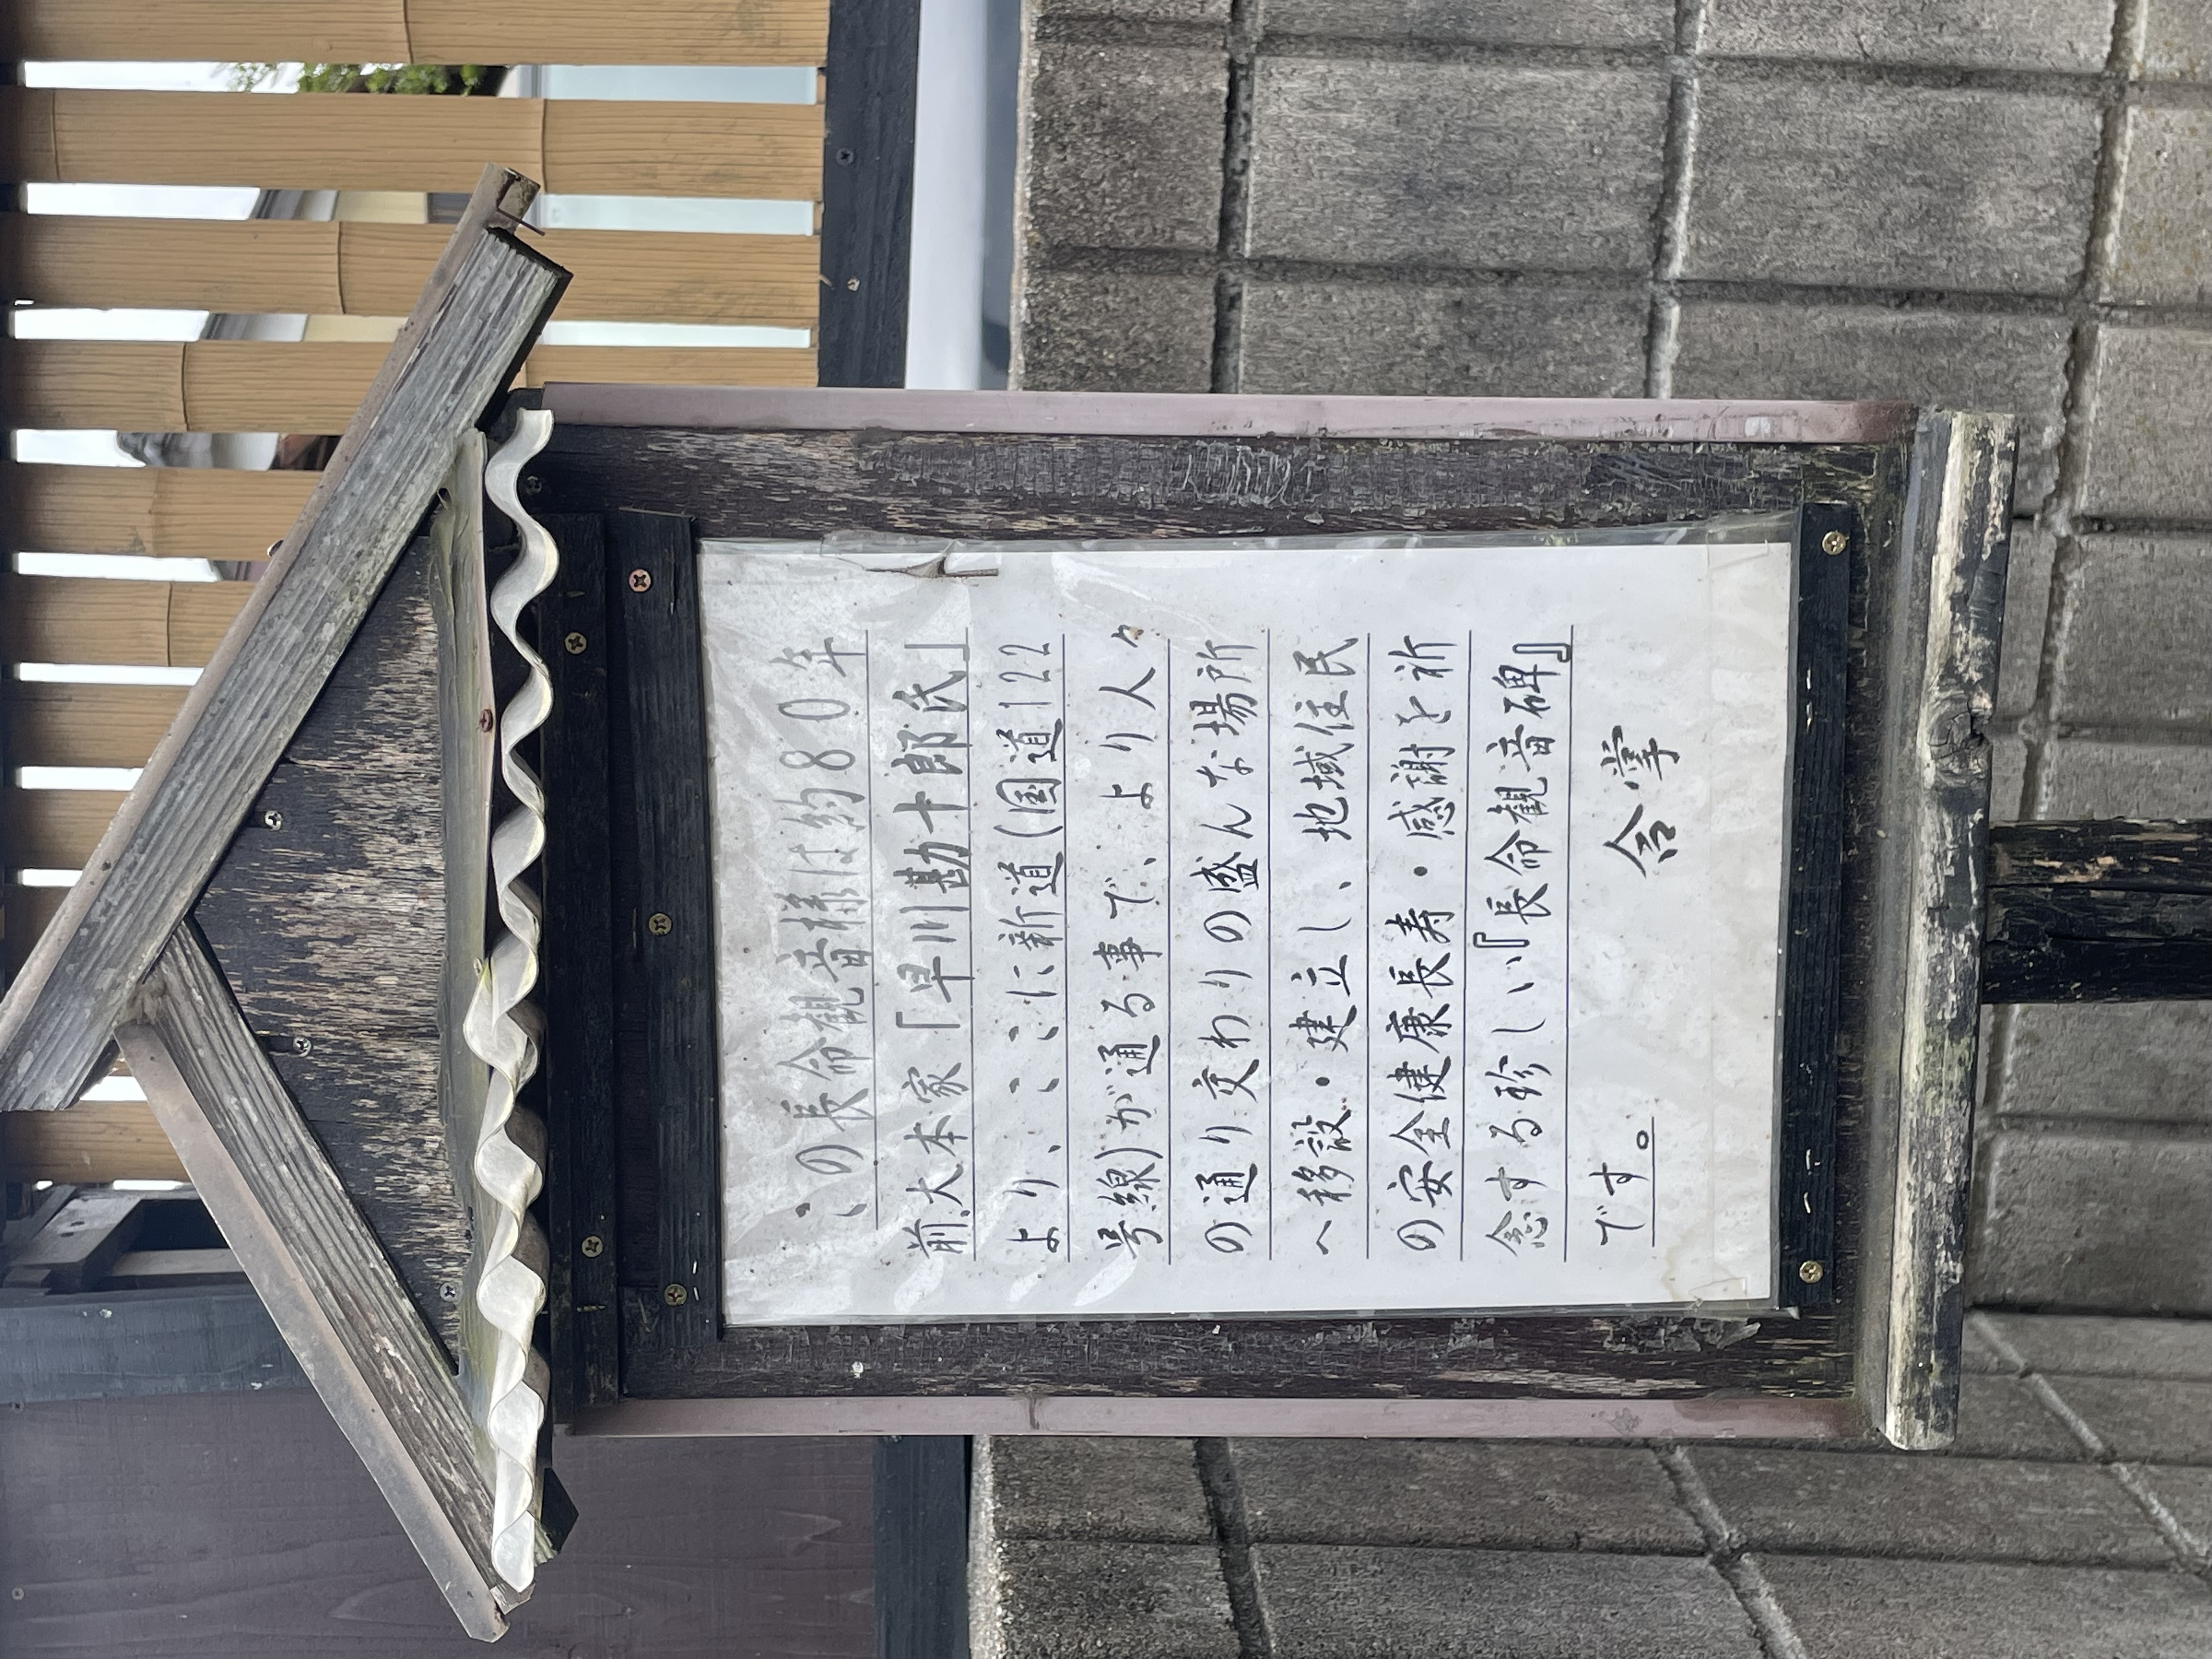 この長命観音様は約80年
前、大本家「早川勘十郎氏」
より、ここに新道(国道122
号線)が通る事で、より人々
の通り交わりの盛んな場所
へ移設・建立し、地域住民
の安全健康長寿・感謝を祈
念する珍しい『長命観音碑』
です。 合掌